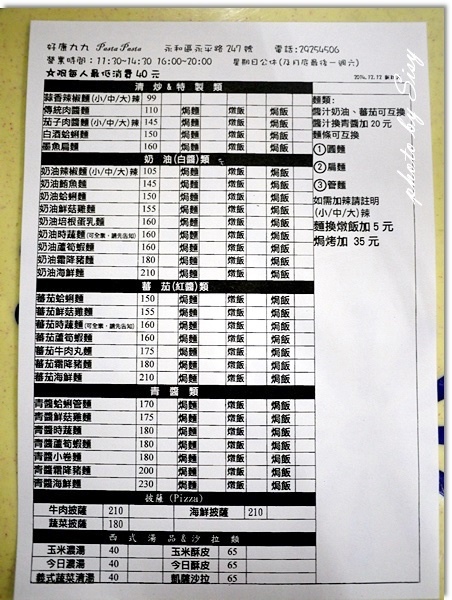 好康九九 Pasta Pasta 永和區永平路 247 號 電話:29254506
營業時間:11:30~14:30 16:00~20:00 星期日公休(及月底最後一週六)
☆現每人最低消費 40 元 2014.12.12
清 炒 & 特 製 類
蒜香辣椒麵(小/中/大)辣 99
傳統肉醬麵 110 焗麵 燉飯 焗飯
茄子肉醬麵(小/中/大)辣 145 焗麵 燉飯 焗飯
白酒蛤蜊麵 150 焗麵 燉飯 焗飯
墨魚扁麵 160 焗麵 燉飯 焗飯
奶 油 (白醬) 類
奶油辣椒麵(小/中/大)辣 105 焗麵 燉飯 焗飯
奶油鮪魚麵 145 焗麵 燉飯 焗飯
奶油蛤蜊麵 150 焗麵 燉飯 焗飯
奶油鮮菇雞麵 155 焗麵 燉飯 焗飯
奶油培根蛋乳麵 160 焗麵 燉飯 焗飯
奶油時蔬麵(可全素，請先告知) 160 焗麵 燉飯 焗飯
奶油蘆筍蝦麵 160 焗麵 燉飯 焗飯
奶油霜降豬麵 180 焗麵 燉飯 焗飯
奶油海鮮麵 210 焗麵 燉飯 焗飯
蕃 茄 (紅醬) 類
蕃茄蛤蜊麵 150 焗麵 燉飯 焗飯
蕃茄鮮菇雞麵 155 焗麵 燉飯 焗飯
蕃茄時蔬麵(可全素，請先告知) 160 焗麵 燉飯 焗飯
蕃茄蘆筍蝦麵 160 焗麵 燉飯 焗飯
蕃茄牛肉丸麵 175 焗麵 燉飯 焗飯
蕃茄霜降豬麵 180 焗麵 燉飯 焗飯
蕃茄海鮮麵 210 焗麵 燉飯 焗飯
青 醬 類
青醬蛤蜊管麵 170 焗麵 燉飯 焗飯
青醬鮮菇雞麵 175 焗麵 燉飯 焗飯
青醬時蔬麵 180 焗麵 燉飯 焗飯
青醬蘆筍蝦麵 180 焗麵 燉飯 焗飯
青醬小卷麵 180 焗麵 燉飯 焗飯
青醬霜降豬麵 200 焗麵 燉飯 焗飯
青醬海鮮麵 230 焗麵 燉飯 焗飯
披薩 (Pizza)
牛肉披薩 210 海鮮披薩 210
蔬菜披薩 180
西 式 湯 品 & 沙 拉 類
玉米濃湯 40 玉米酥皮 65
今日濃湯 40 今日酥皮 65
義式蔬菜清湯 40 凱薩沙拉 65
麵類:
醬汁奶油、蕃茄可互換
醬汁換青醬加 20 元
麵條可互換
①圓麵
②扁麵
③管麵
如需加辣請註明
(小/中/大)辣
麵換燉飯加 5 元
焗烤加 35 元
photo by Sivy